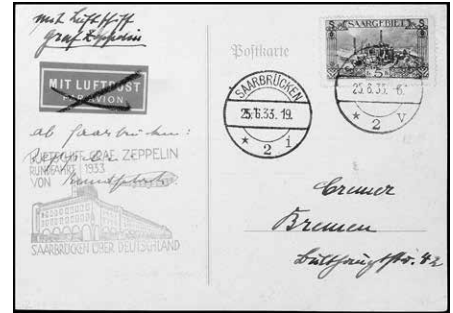 mit Luftschiff
Graf Zeppelin
MIT LUFTPOST
PAR AVION
ab Saarbrücken:
LUFTSCHIFF GRAF ZEPPELIN
RUNDFAHRT 1933
VON
SAARBRÜCKEN ÜBER DEUTSCHLAND
Postkarte
SAARGEBIET
SAARBRÜCKEN
25.6.33. 19.
* 2 i
25.6.33.
* 2 v
Cremer
Bremen